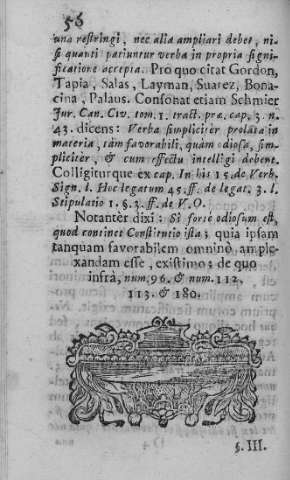 56
una restringi, nec alia ampliari debet, ni-
si quanti patiuntur verba in propria signi-
ficatione accepta. Pro quo citat Gordon,
Tapia, Salas, Layman, Suarez, Bona-
cina, Palaus. Consonat etiam Schmier
Jur. Can. Civ. tom. 1. tract. præ. cap. 3. n.
43. dicens: Verba simplicitèr prolata in
materia, tàm favorabili, quàm odiosa, sim-
plicitèr, & cum effectu intelligi debent.
Colligiturque ex cap. In his 15. de Verb.
Sign. l. Hoc legatum 45. ff. de legat. 3. l.
Stipulatio 1. §. 3. ff. de V. O.
Notantèr dixi: Si fortè odiosum est,
quod continet Constitutio ista; quia ipsam
tanquam favorabilem omninòample-
xandam esse, existimo; de quo
infrà, num. 96. & num. 112.
113. & 180.
§. III.